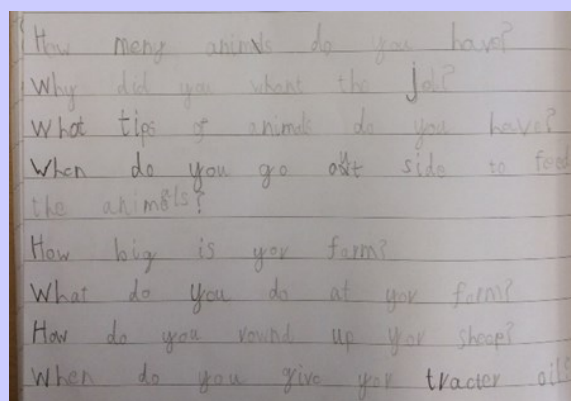 How meny animls do you have?
Why did you whant the job?
What tips of animals do you have?
When do you go out side to feed
the animals?
How big is yor farm?
What do you do at yor farm?
How do you round up yor sheep?
When do you give yor tracter oil?